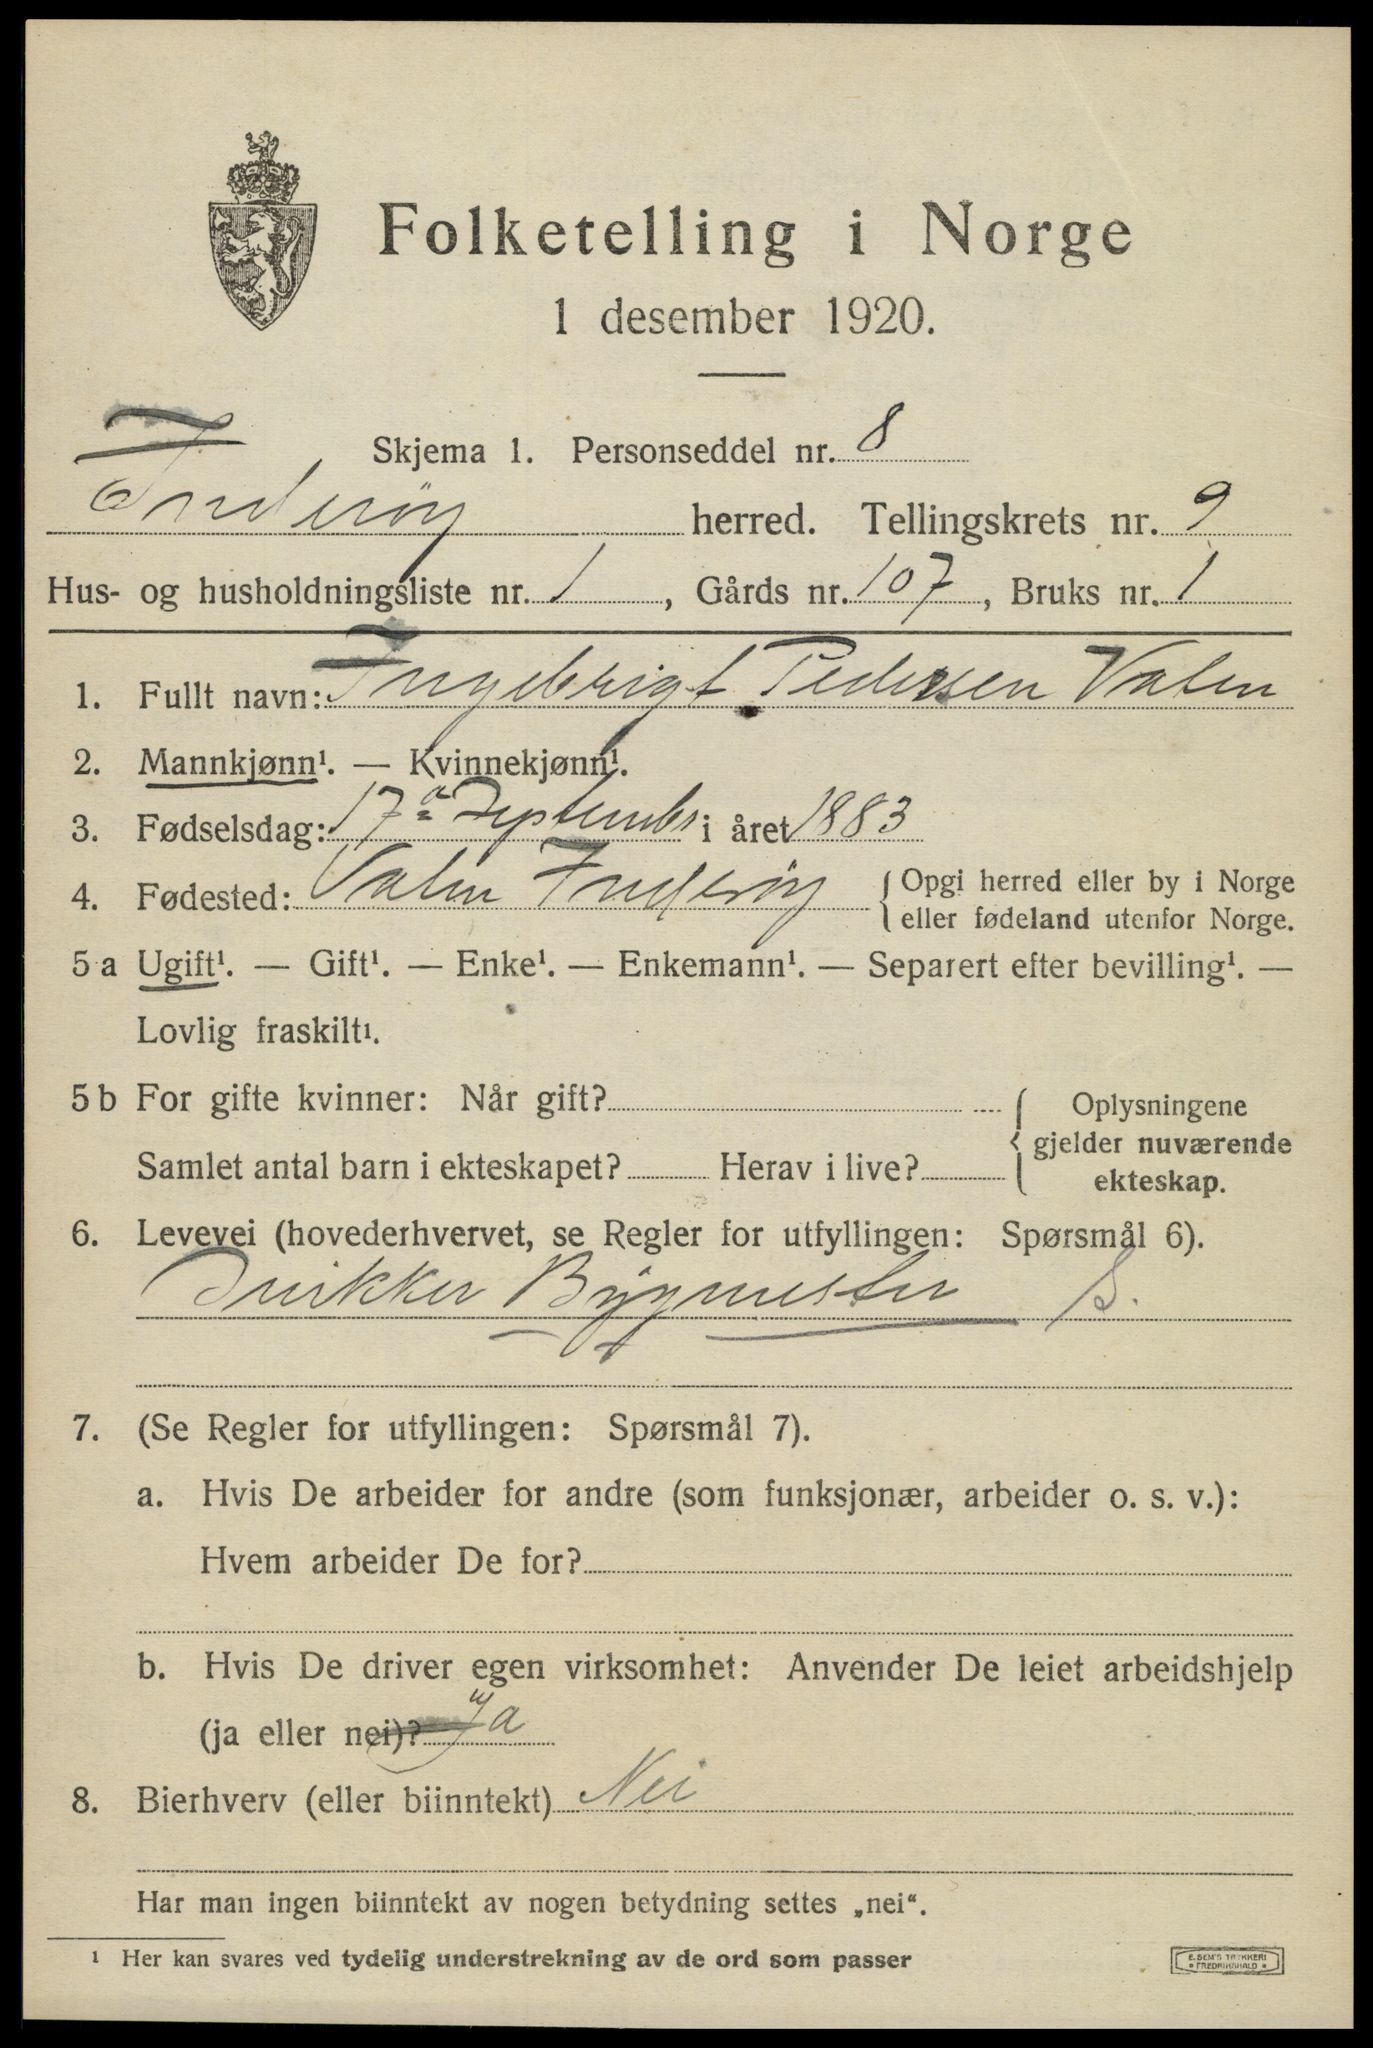 Folketelling i Norge
1 desember 1920.
Skjema 1. Personseddel nr. 8
Inderöy herred. Tellingskrets nr. 9
Hus- og husholdningsliste nr. 1, Gårds nr. 107, Bruks nr. 1
1. Fullt navn: Ingebrigt Pedersen Valen
2. Mannkjønn¹. — Kvinnekjønn¹.
3. Fødselsdag: 17de September i året 1883
4. Fødested: Valen Inderöy { Opgi herred eller by i Norge
eller fødeland utenfor Norge.
5 a Ugift¹. — Gift¹. — Enke¹. — Enkemann¹. — Separert efter bevilling¹. —
Lovlig fraskilt¹.
5 b For gifte kvinner: Når gift? { Oplysningene
gjelder nuværende
Samlet antal barn i ekteskapet? Herav i live?
ekteskap.
6. Levevei (hovederhvervet, se Regler for utfyllingen: Spørsmål 6).
Snikker Bygmester S.
7. (Se Regler for utfyllingen: Spørsmål 7).
a. Hvis De arbeider for andre (som funksjonær, arbeider o. s. v.):
Hvem arbeider De for?
b. Hvis De driver egen virksomhet: Anvender De leiet arbeidshjelp
(ja eller nei)? Ja
8. Bierhverv (eller biinntekt) Nei
Har man ingen biinntekt av nogen betydning settes „nei“.
¹ Her kan svares ved tydelig understrekning av de ord som passer
E. SEM'S TRYKKERI
FREDRIKSHALD